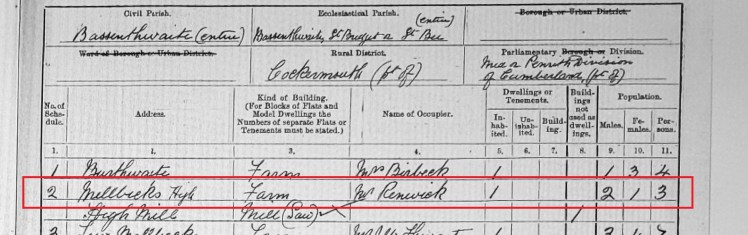 Civil Parish. Ecclesiastical Parish. Borough or Urban District.
Bassenthwaite (entire) Bassenthwaite St Bridget & St Bee (entire)
Ward of Borough or Urban District. Rural District. Parliamentary Borough or Division.
Cockermouth (pt of) Penrith Division
of Cumberland, (pt of)
No. of Schedule. Address. Kind of Building. (For Blocks of Flats and Model Dwellings the Numbers of separate Flats or Tenements must be stated.) Name of Occupier. Dwellings or Tenements. Inhabited. Uninhabited. Building. Buildings not used as dwellings. Population. Males. Females. Persons.
1. 2. 3. 4. 5. 6. 7. 8. 9. 10. 11.
1 Burthwaite Farm Mrs Birbeck 1 1 3 4
2 Mellbecks High Farm Mr Renwick 1 2 1 3
High Mill Mill (Saw) 1
3